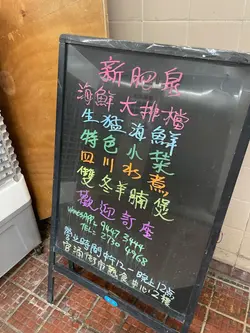 新肥泉
海鮮大排檔
生猛海鮮
特色小菜
四川水煮
雙冬羊腩煲
歡迎訂座
WHATSAPP: 9447 3444
TEL: 2730 4968
營業時間 中午12-晚上12點
官涌街市熟食中心2樓